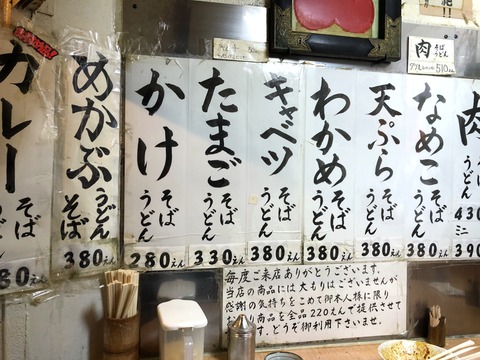 肉 そば うどん
510えん
カレー そば うどん
80えん
めかぶ うどん そば
380えん
かけ そば うどん
280えん
たまご そば うどん
330えん
キャベツ そば うどん
380えん
わかめ そば うどん
380えん
天ぷら そば うどん
380えん
なめこ そば うどん
380えん
肉 そば うどん
430
ミニ
390
毎度ご来店ありがとうございます。
当店の商品には大もりはございませんが
感謝の気持ちをこめて御本人様に限り
り商品を全品220えんで提供させて
す。どうぞ御利用下さいませ。